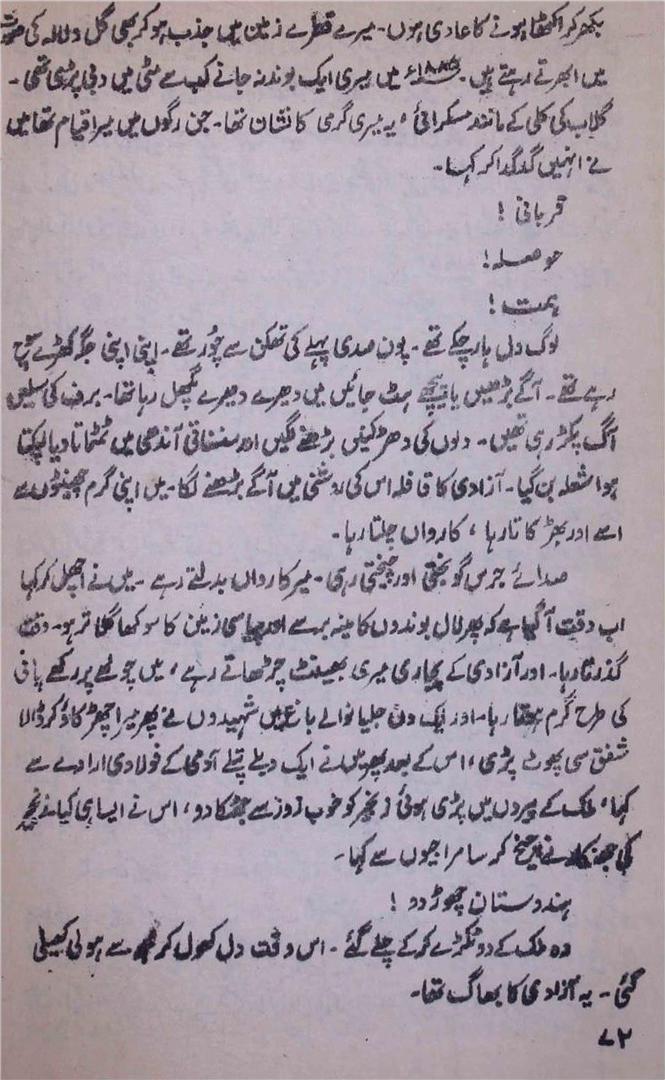 بکھر کر اکٹھا ہونے کا عادی ہوں۔ میرے قطرے زمین میں جذب ہو کر بھی گل و لالہ کی صورت
میں ابھرتے رہتے ہیں۔ ۱۸۸۵ء میں میری ایک بوند نہ جانے کب سے مٹی میں دبی پڑی تھی۔
گلاب کی کلی کے مانند مسکرائی، یہ میری گرمی کا نشان تھا۔ جن رگوں میں میرا قیام تھا میں
نے انہیں گدگدا کر کہا۔
قربانی!
حوصلہ!
ہمت!
لوگ دل ہار چکے تھے۔ پون صدی پہلے کی تھکن سے چُور تھے۔ اپنی اپنی جگہ کھڑے سوچ
رہے تھے۔ آگے بڑھیں یا پیچھے ہٹ جائیں میں دھیرے دھیرے پگھل رہا تھا۔ برف کی سلیں
آگ پکڑ رہی تھیں۔ دلوں کی دھڑکنیں بڑھنے لگیں اور سنسناتی آندھی میں ٹمٹماتا دیا لپکتا
ہوا شعلہ بن گیا۔ آزادی کا قافلہ اس کی روشنی میں آگے بڑھنے لگا۔ میں اپنی گرم چھینٹوں سے
اسے اور بھڑکاتا رہا، کارواں چلتا رہا۔
صدائے جرس گونجتی اور چیختی رہی۔ میر کارواں بدلتے رہے۔ میں نے اچھل کر کہا
اب وقت آ گیا ہے کہ پھر لال بوندوں کا مینہ برسے اور پیاسی زمین کا سوکھا گلا تر ہو۔ وقت
گذرتا رہا۔ اور آزادی کے پجاری میری بھینٹ چڑھاتے رہے، میں چولھے پر رکھے پانی
کی طرح گرم ہوتا رہا۔ اور ایک دن جلیانوالے باغ میں شہیدوں نے پھر میرا چھڑکاؤ کر ڈالا
شفق سی پھوٹ پڑی، اس کے بعد پھر میں نے ایک دبلے پتلے آدمی کے فولادی ارادے سے
کہا، ملک کے پیروں میں پڑی ہوئی زنجیر کو خوب زور سے جھٹکا دو، اس نے ایسا ہی کیا زنجیر
کی جھنکار نے چیخ کر سامراجیوں سے کہا۔
ہندوستان چھوڑ دو!
وہ ملک کے دو ٹکڑے کر کے چلے گئے۔ اس وقت دل کھول کر مجھ سے ہولی کھیلی
گئی۔ یہ آزادی کا بھاگ تھا۔
۷۲